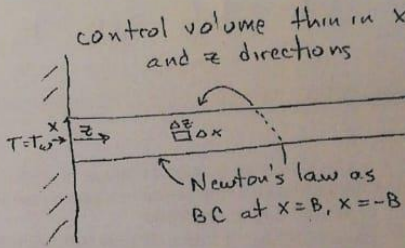 control volume thin in x
and z directions
x
z
T=Tw
Δz
Δx
Newton's law as
BC at x=B, x=-B